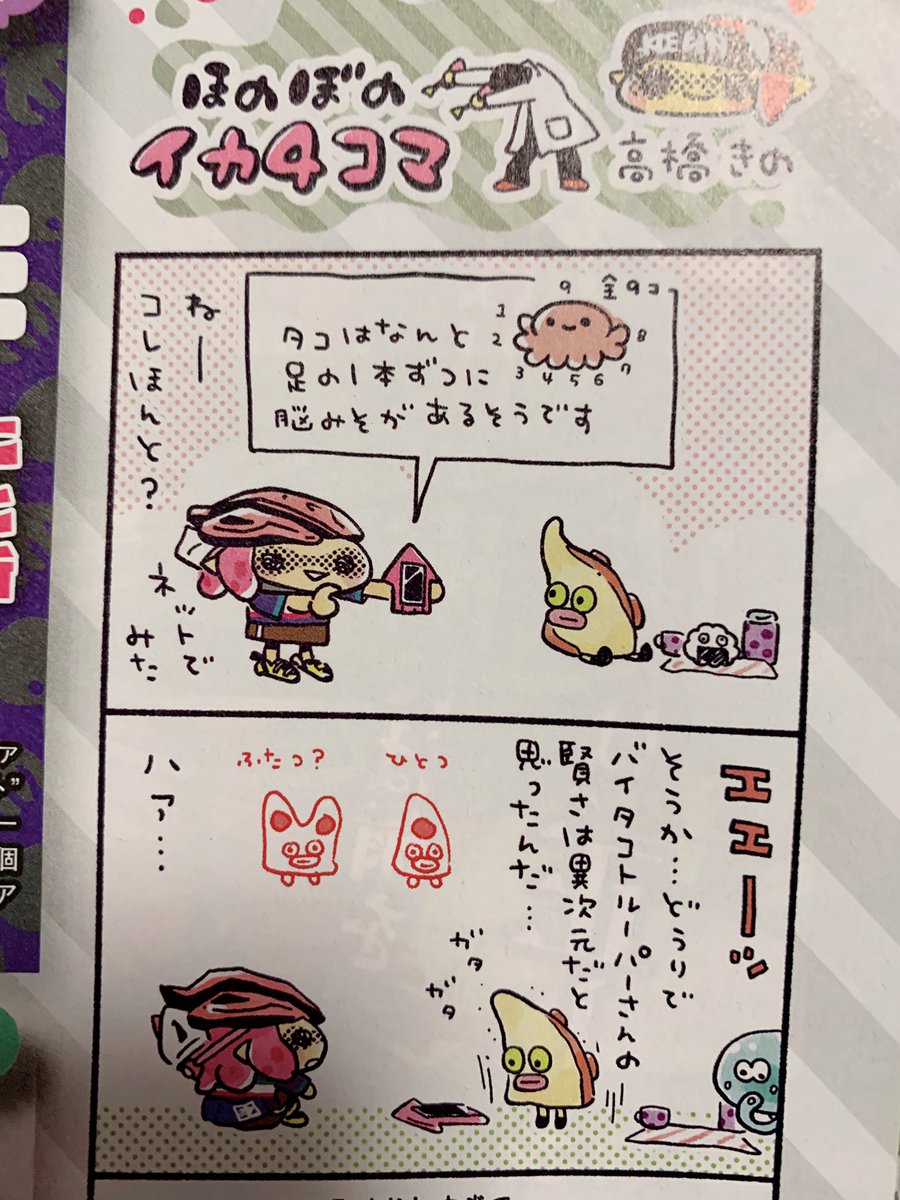 ほのぼの
イカ4コマ
高橋きの
9 全9コ
1
2
3
4
5
6
7
8
タコはなんと
足の1本ずつに
脳みそがあるそうです
ねー
コレほんと?
ネットで
みた
エエーッ
そうか…どうりで
バイタコトルーパーさんの
賢さは異次元だと
思ったんだ…
ひとつ
ふたつ?
ハァ….
ガタ
ガタ
ア
個
ア